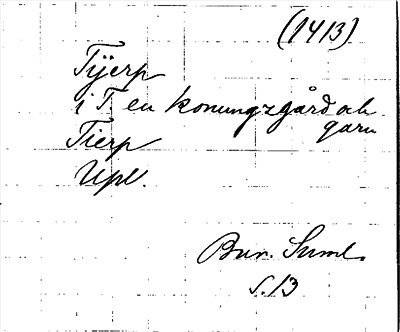 (1413)
Tijerp
i T. en konungzgård och
qarn
Tierp
Upl.
Bur. Suml.
s. 13